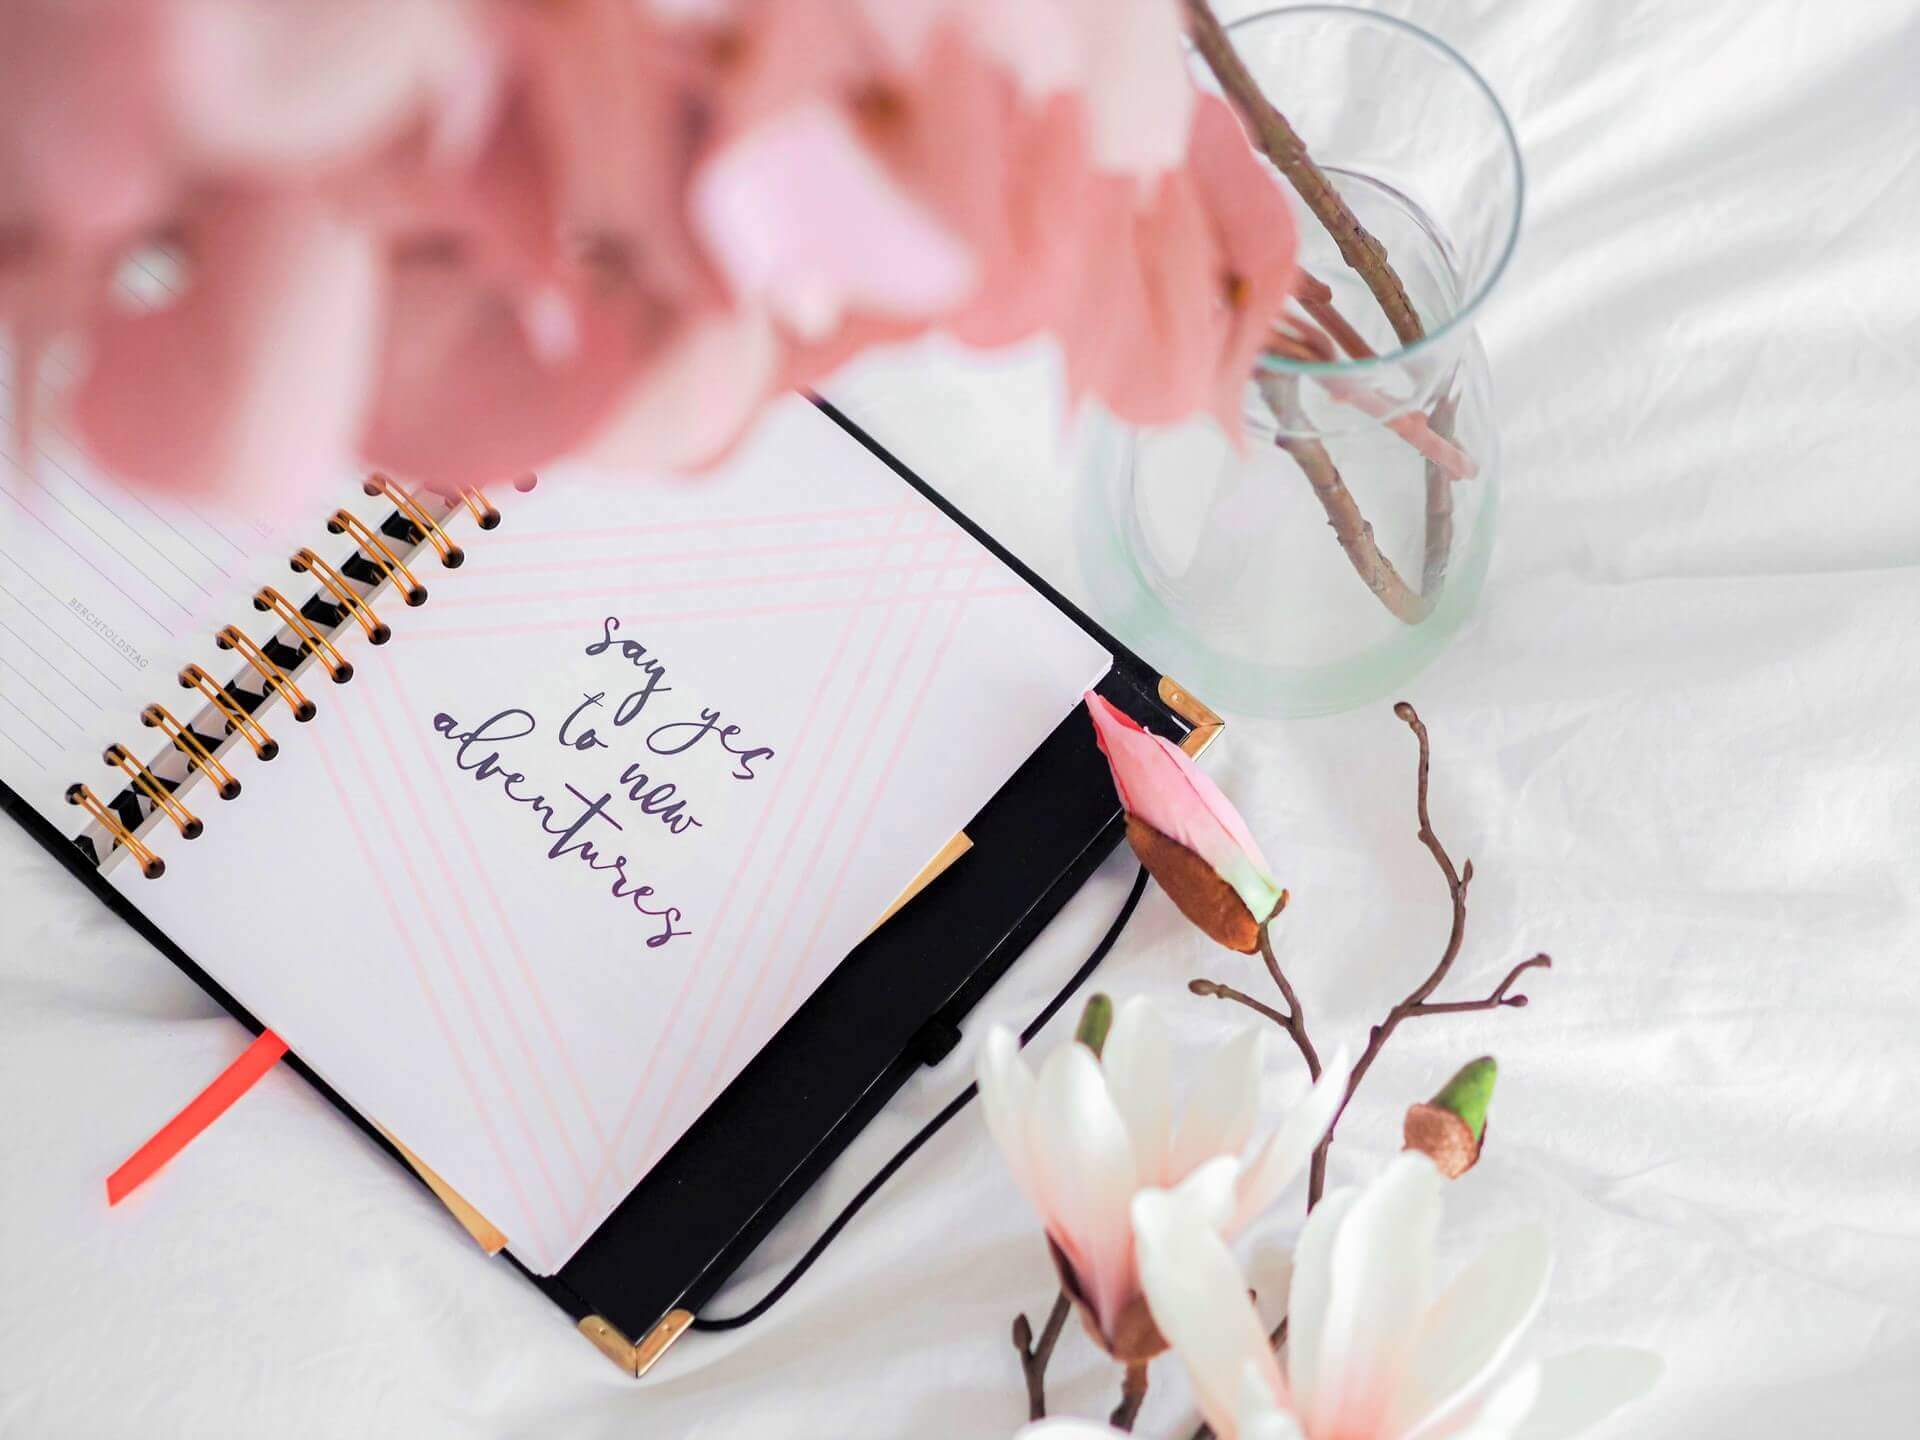 BERCHTOLDSTAG
say yes
to new
adventures